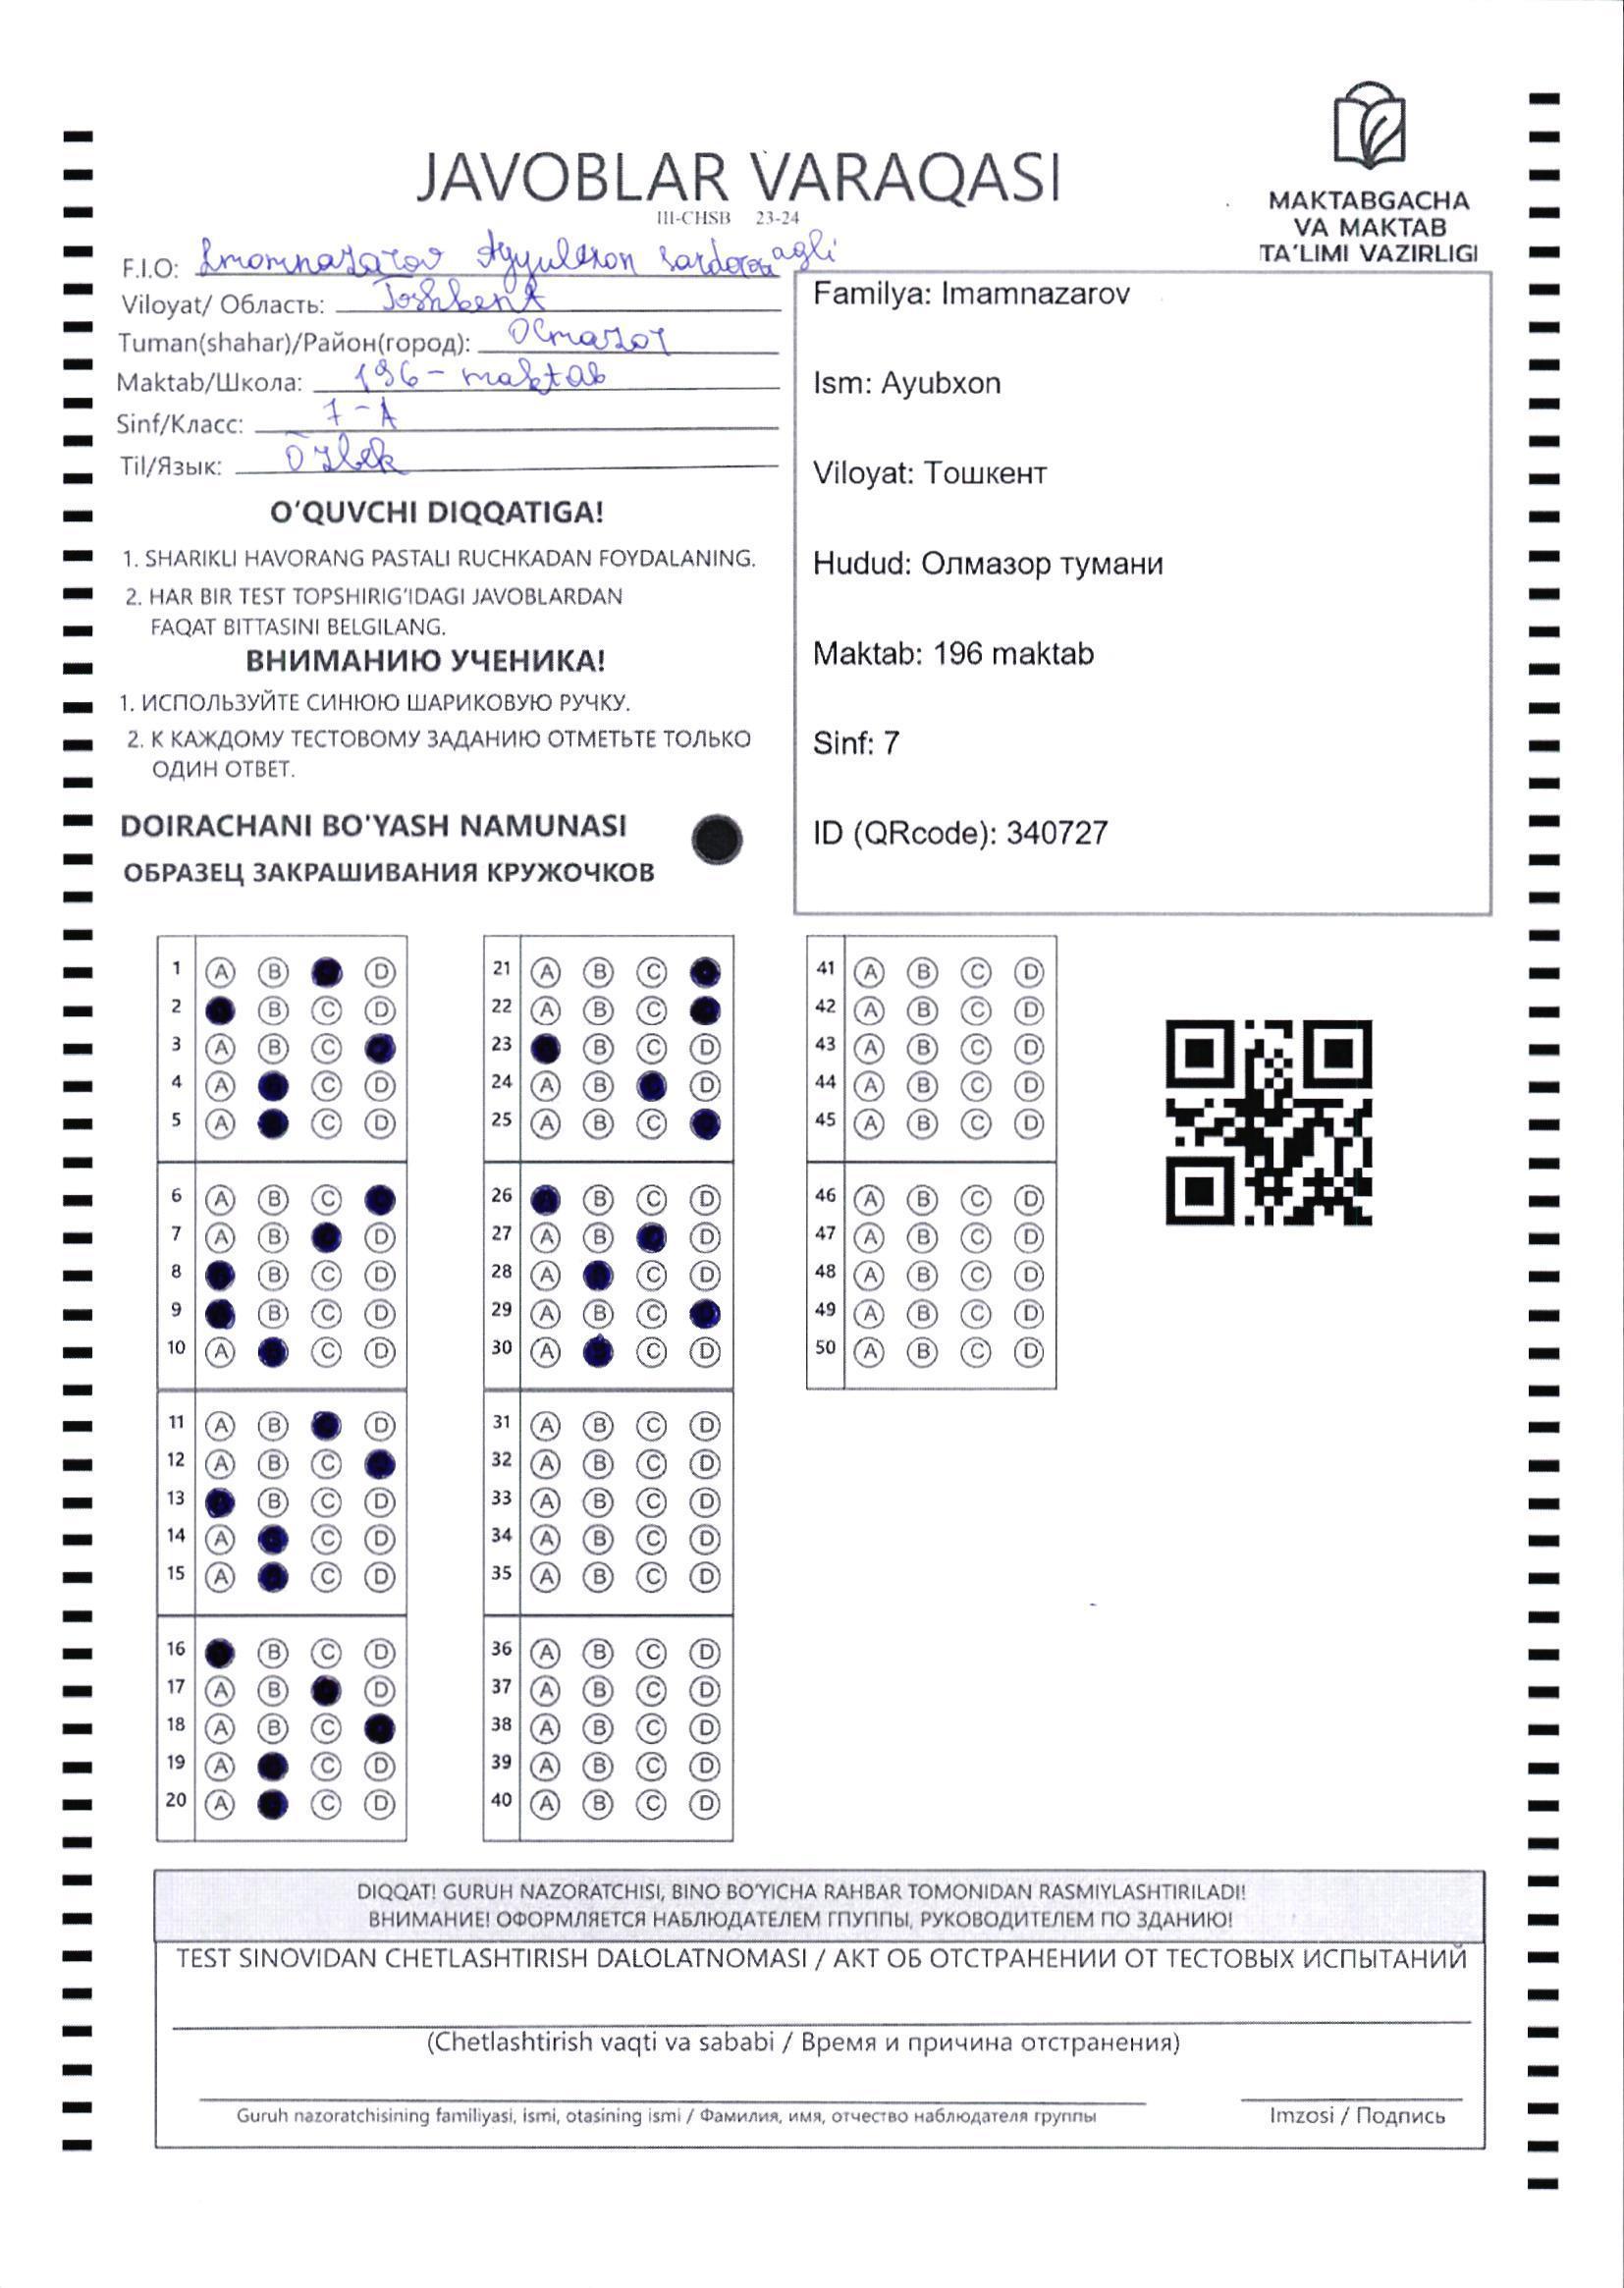 JAVOBLAR VARAQASI
III-CHSB 23-24
MAKTABGACHA
VA MAKTAB
TA'LIMI VAZIRLIGI
F.I.O: Imomnazarov Ayyubxon Sardor ogli
Viloyat/ Область: Toshkent
Tuman(shahar)/Район(город): Olmazor
Maktab/Школа: 196 - maktab
Sinf/Класс: 7-A
Til/Язык: O'zbek
O'QUVCHI DIQQATIGA!
1. SHARIKLI HAVORANG PASTALI RUCHKADAN FOYDALANING.
2. HAR BIR TEST TOPSHIRIG'IDAGI JAVOBLARDAN
FAQAT BITTASINI BELGILANG.
ВНИМАНИЮ УЧЕНИКА!
1. ИСПОЛЬЗУЙТЕ СИНЮЮ ШАРИКОВУЮ РУЧКУ.
2. К КАЖДОМУ ТЕСТОВОМУ ЗАДАНИЮ ОТМЕТЬТЕ ТОЛЬКО
ОДИН ОТВЕТ.
DOIRACHANI BO'YASH NAMUNASI
ОБРАЗЕЦ ЗАКРАШИВАНИЯ КРУЖОЧКОВ
Familya: Imamnazarov
Ism: Ayubxon
Viloyat: Тошкент
Hudud: Олмазор тумани
Maktab: 196 maktab
Sinf: 7
ID (QRcode): 340727
1 A B D
2 B C D
3 A B C
4 A C D
5 A C D
6 A B C
7 A B D
8 B C D
9 B C D
10 A C D
11 A B D
12 A B C
13 B C D
14 A C D
15 A C D
16 B C D
17 A B D
18 A B C
19 A C D
20 A C D
21 A B C
22 A B C
23 B C D
24 A B D
25 A B C
26 B C D
27 A B D
28 A C D
29 A B C
30 A C D
31 A B C D
32 A B C D
33 A B C D
34 A B C D
35 A B C D
36 A B C D
37 A B C D
38 A B C D
39 A B C D
40 A B C D
41 A B C D
42 A B C D
43 A B C D
44 A B C D
45 A B C D
46 A B C D
47 A B C D
48 A B C D
49 A B C D
50 A B C D
DIQQAT! GURUH NAZORATCHISI, BINO BO'YICHA RAHBAR TOMONIDAN RASMIYLASHTIRILADI!
ВНИМАНИЕ! ОФОРМЛЯЕТСЯ НАБЛЮДАТЕЛЕМ ГПУППЫ, РУКОВОДИТЕЛЕМ ПО ЗДАНИЮ!
TEST SINOVIDAN CHETLASHTIRISH DALOLATNOMASI / АКТ ОБ ОТСТРАНЕНИИ ОТ ТЕСТОВЫХ ИСПЫТАНИЙ
(Chetlashtirish vaqti va sababi / Время и причина отстранения)
Guruh nazoratchisining familiyasi, ismi, otasining ismi / Фамилия, имя, отчество наблюдателя группы
Imzosi / Подпись